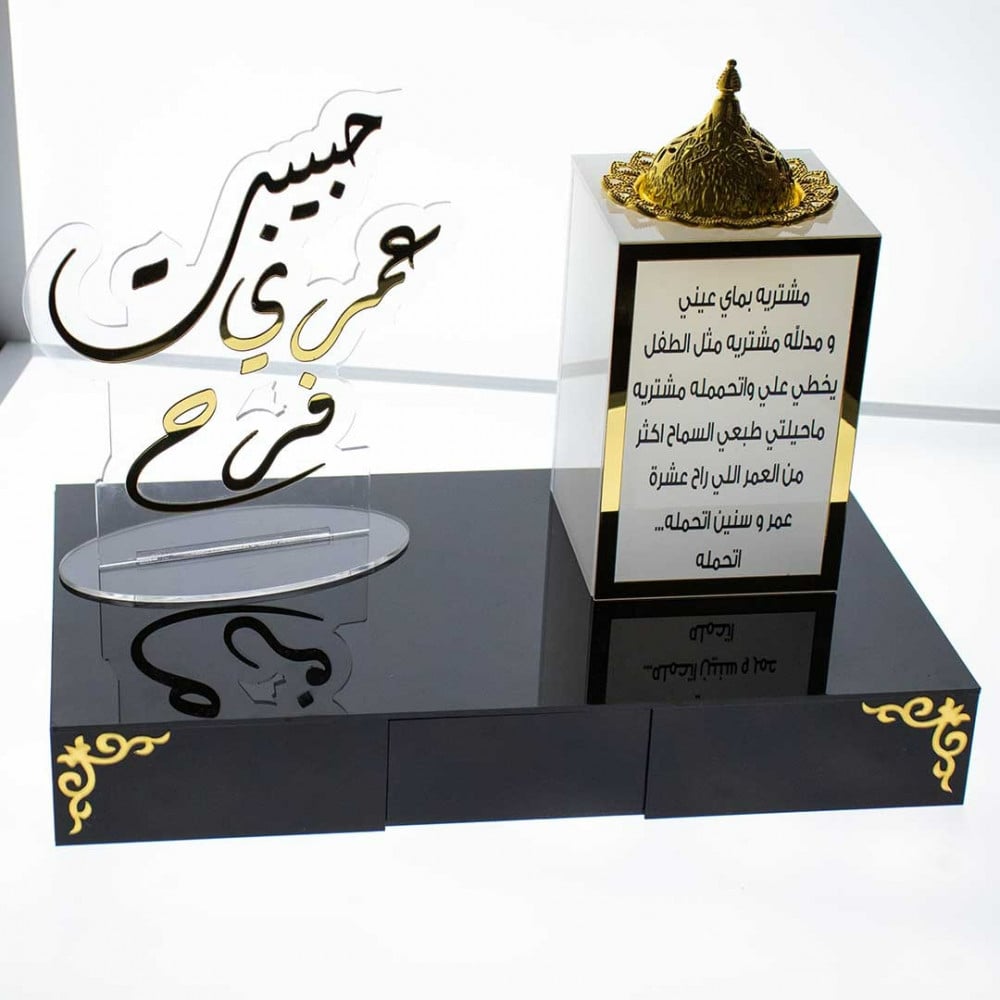 حبيبت
عمري
فرح
مشتريه بماي عيني
و مدللّه مشتريه مثل الطفل
يخطي علي واتحممله مشتريه
ماحيلتي طبعي السماح اكثر
من العمر اللي راح عشرة
عمر و سنين اتحمله...
اتحمله